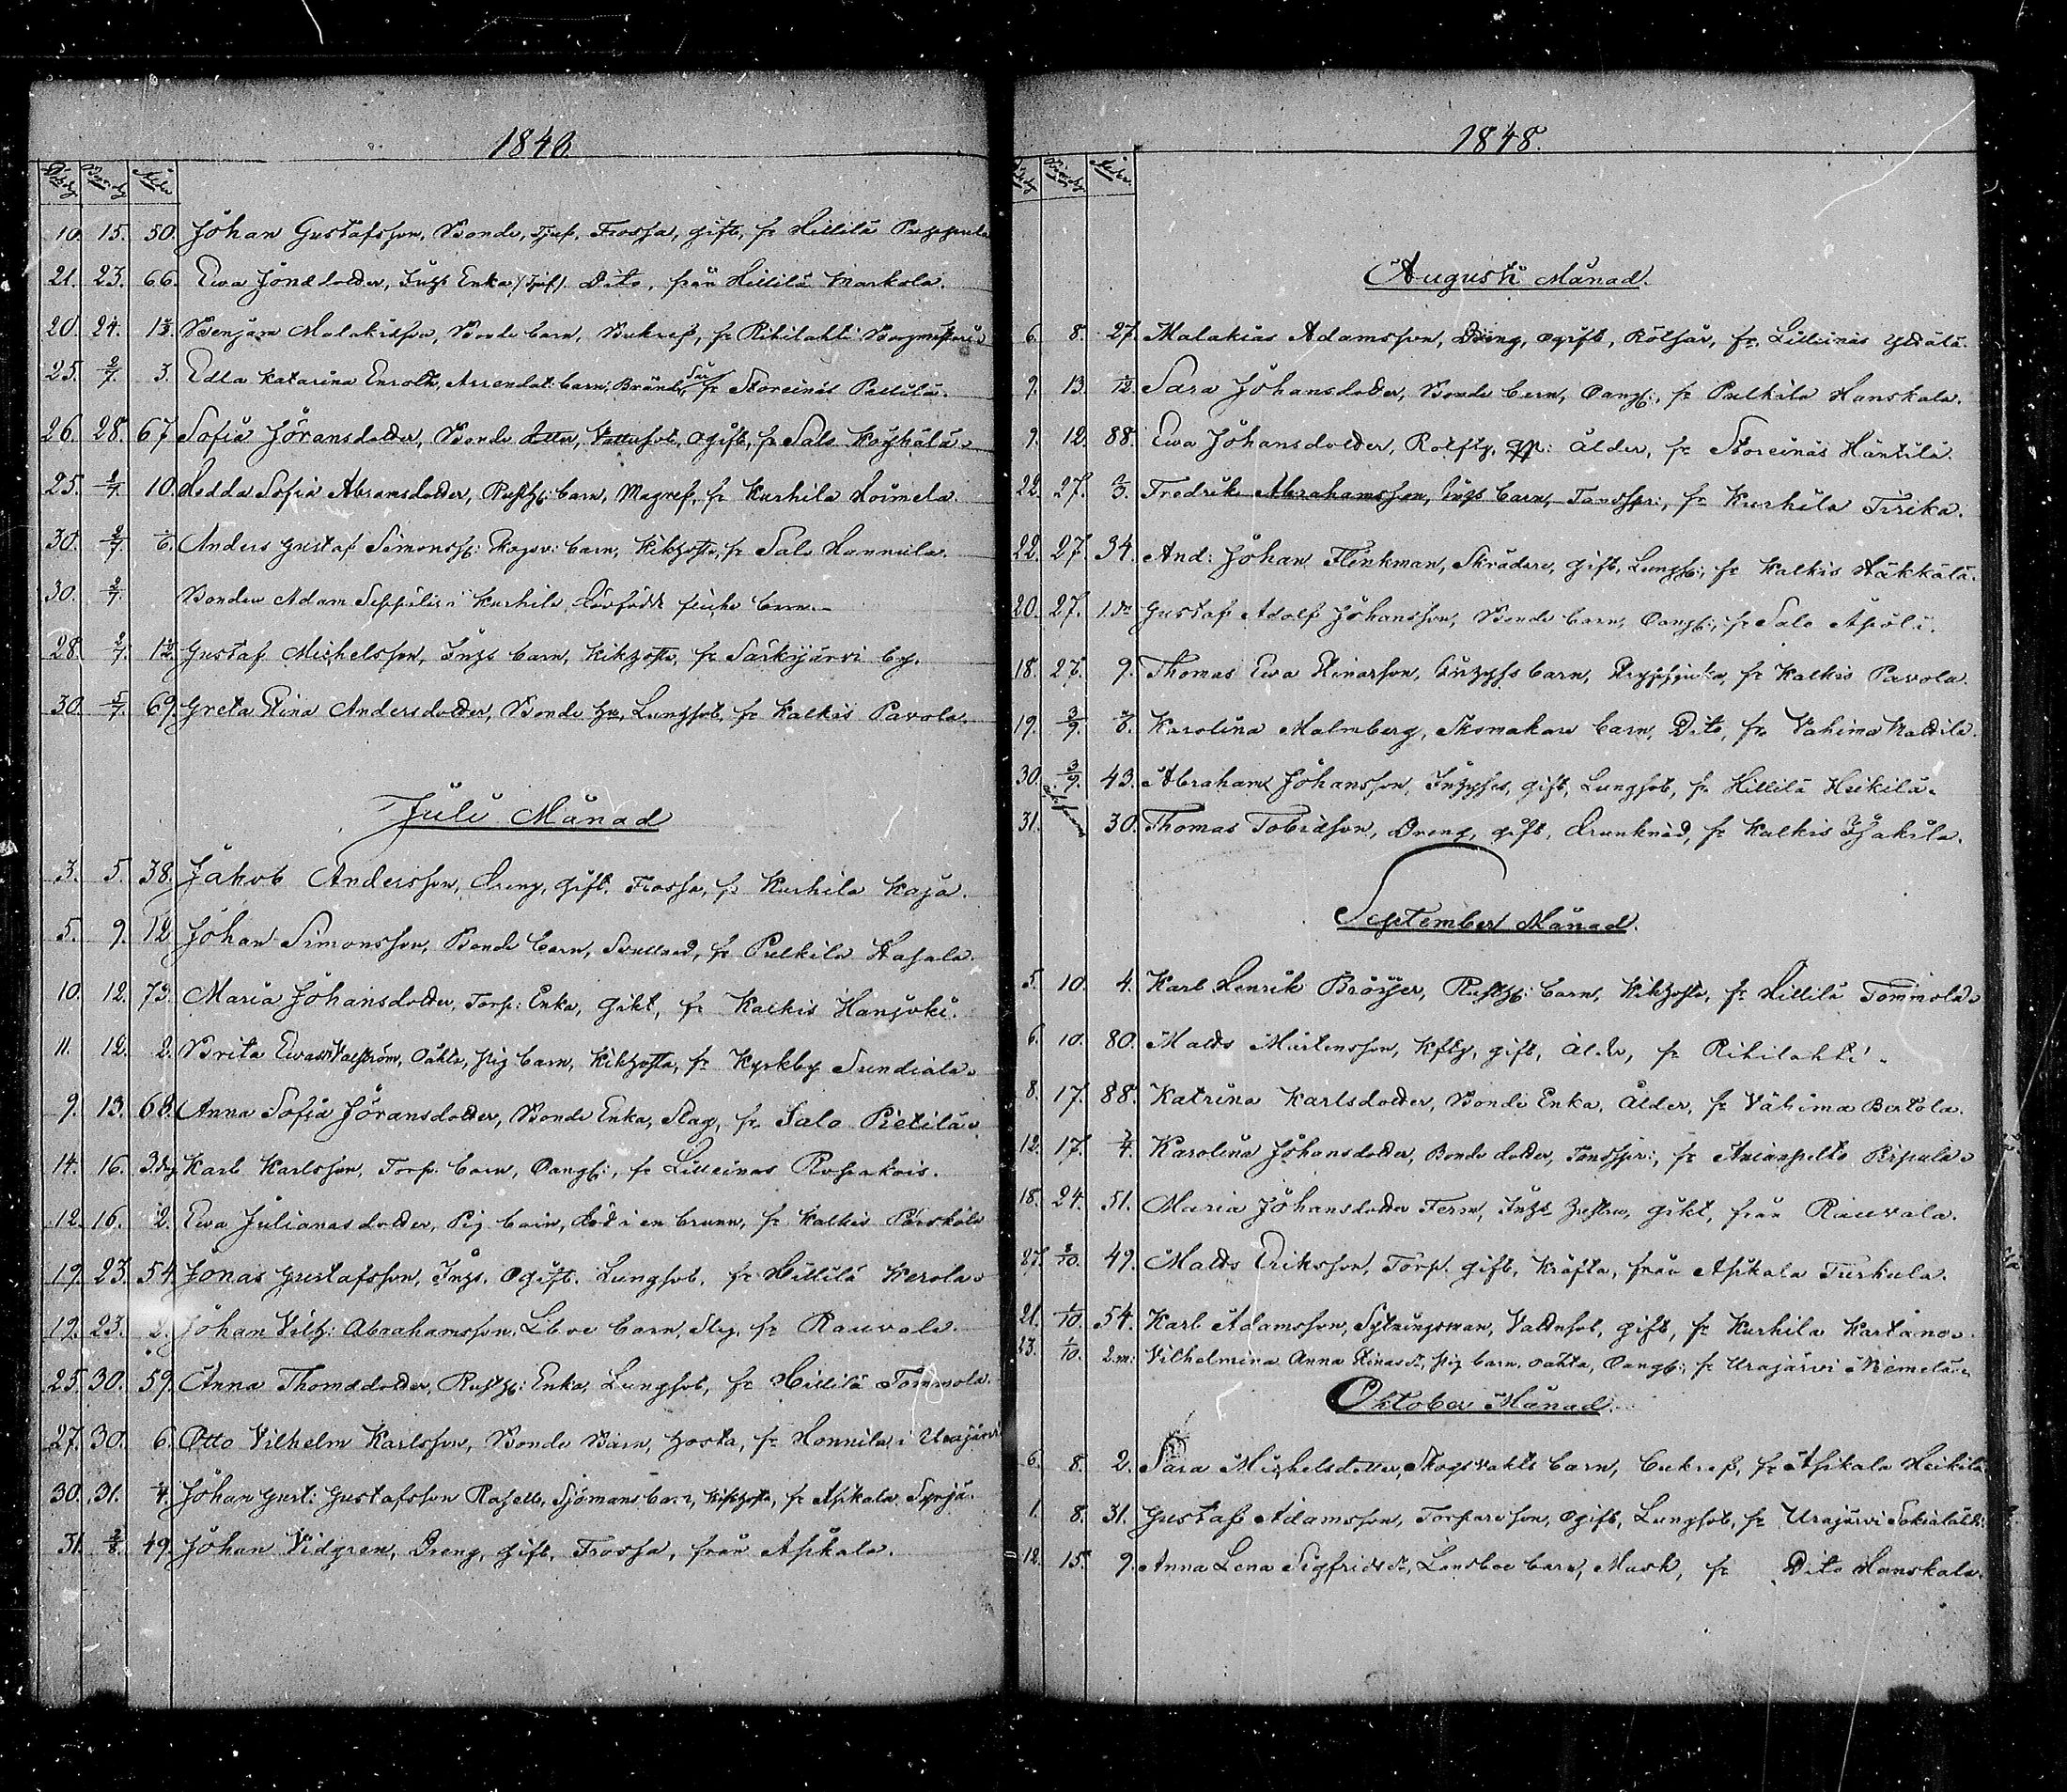 1848.
10. 15. 50. Johan Gustafsson, Bonde, Tjuf, Frossa, gift, fr Hillilä
21. 23. 66. Ewa Jöns dotder, Inhs Enka /Tjuf/ Dito, från Hillilä Markola.
20. 24. Benjam Malakisson, Bonde barn, Bukref, fr Rihilahti
25. 2/7. 3. Edla Katarina Enroth, Arrendat: barn, Bränd Sår fr Storeinäs Pietilä.
26. 28. 67. Sofia Göransdotder, Bonde Vattusot, ogift, fr Salo Köykälä.
25. 2/7. 10. Hedda Sofia Abramsdotder, Rusth: barn, Magref, fr Kurhila Hoimela
30. 2/7. Anders Gustaf Simonss: Skogv: barn, Kikhosta, fr Salo Hannula.
30. 2/7. Bonden Adam Seppälis i Kurhila, dödfödt barn.
28. 2/7. Gustaf Michelsson, Inhs barn, Kikhosta, fr Särkijärvi by.
30. 5/7. 69. Greta Stina Andersdotder, Bonde hu, Lungsot, fr Kalkis Pavola.
Juli Månad
3. 5. 38. Jakob Andersson, Dreng, gift, Frossa, fr Kurhila Kaja.
5. 9. 12. Johan Simonsson, Bonde barn, fr Pulkila Hasala.
10. 12. 73. Maria Johansdotder, Torp: Enka, gikt, fr Kalkis Hanjoki.
11. 12. 2. Brita Ewas Valström, Oäkta, pig barn, Kikhosta, fr Kyrkby Sundiala.
9. 13. 68. Anna Sofia Göransdotder, Bonde Enka, Slag, fr Salo Pietilä.
14. 16. 3 dag Karl Karlsson, Torp. barn, Oangf:, fr Lilleinas
12. 16. 2. Ewa Julianas dotder, Pig barn, död i en brunn, fr Kalkis
19. 23. 54. Jonas Gustafsson, Inhs. Ogift. Lungsot, fr Hillilä Kerola.
19. 23. 2. Johan Vilh: Abrahamsson, Lboe barn, Slag, fr Rauvala
25. 30. 59. Anna Thomsdotder, Rusth: Enka, Lungsot, fr Hillilä Tommola.
27. 30. 6. Otto Vilhelm Karlsson, Bonde Barn, hosta, fr Honnila i Urajärvi
30. 31. Johan Gust: Gustafsson Rasell, Sjömans barn, Kikhosta, fr Asikala Syrjä.
31. 2/8. 49. Johan Vidgren, Dreng, gift, Frossa, från Asikala.
1848.
Augusti Månad.
6. 8. 27. Malakias Adamsson, Dreng, ogift, Rötsår, fr. Lilleinäs
9. 13. Sara Johansdotder, Bonde barn, Oangf:, fr Pulkila Hanskala.
9. 12. 88. Ewa Johansdotder, Rotfthg, ålder, fr Storeinäs Häntilä
22. 27. Fredrik Abrahamsson, Inhs barn, Tandspr:, fr Kurhila Tirika.
22. 27. 34. And: Johan Flinkman, Skrädere, gift, Lungs:, fr Kalkis Häkkälä.
20. 27. Gustaf Adolf Johansson, Bonde barn, Oangf:, fr Salo
18. 27. 9. Thomas Ewa Stinasson, barn, fr Kalkis Pavola.
19. 3/9. Karolina Malmberg, Skomakare barn, Dito, fr Vähimä
30. 3/9. 43. Abraham Johansson, gift, Lungsot, fr Hillilä Heikilä.
31. 30. Thomas Tobidson, Dreng, gift, drunknad, fr Kalkis
September Månad.
5. 10. 4. Karl Henrik Bröijer, Rusth: barn, Kikhosta, fr Hillilä Tommola.
6. 10. 80. Matds Mårtensson, gift, ålder, fr Rihilahti.
8. 17. 88. Katrina Karlsdotder, Bonde Enka, ålder, fr Vähimä Bertola.
12. 17. Karolina Johansdotder, Bonde dotder, Tandspr:, fr Anianpelto
18. 24. 51. Maria Johansdotder Term, Inhs hustru, gikt, från Rauvala.
27. 8/10. 49. Matds Eriksson, Torp. gift, kräfta, från Asikala Turkula.
21. 1/10. 54. Karl Adamsson, Sytningsman, Vattusot, gift, fr Kurhila Kartano.
23. 1/10. 2 m: Vilhelmina Anna Stinas dr, pig barn, oäkta, Oangf:, fr Urajärvi Niemelä.
Oktober Månad.
6. 8. 2. Sara Michelsdotter, Skogsvakts barn, bukref, fr Asikala Heikilä
1. 8. 31. Gustaf Adamsson, Torpareson, Ogift, Lungsot, fr Urajärvi
12. 15. 9. Anna Lena Sigfrids dr, Landboe barn, Mask, fr Dito Hanskala.